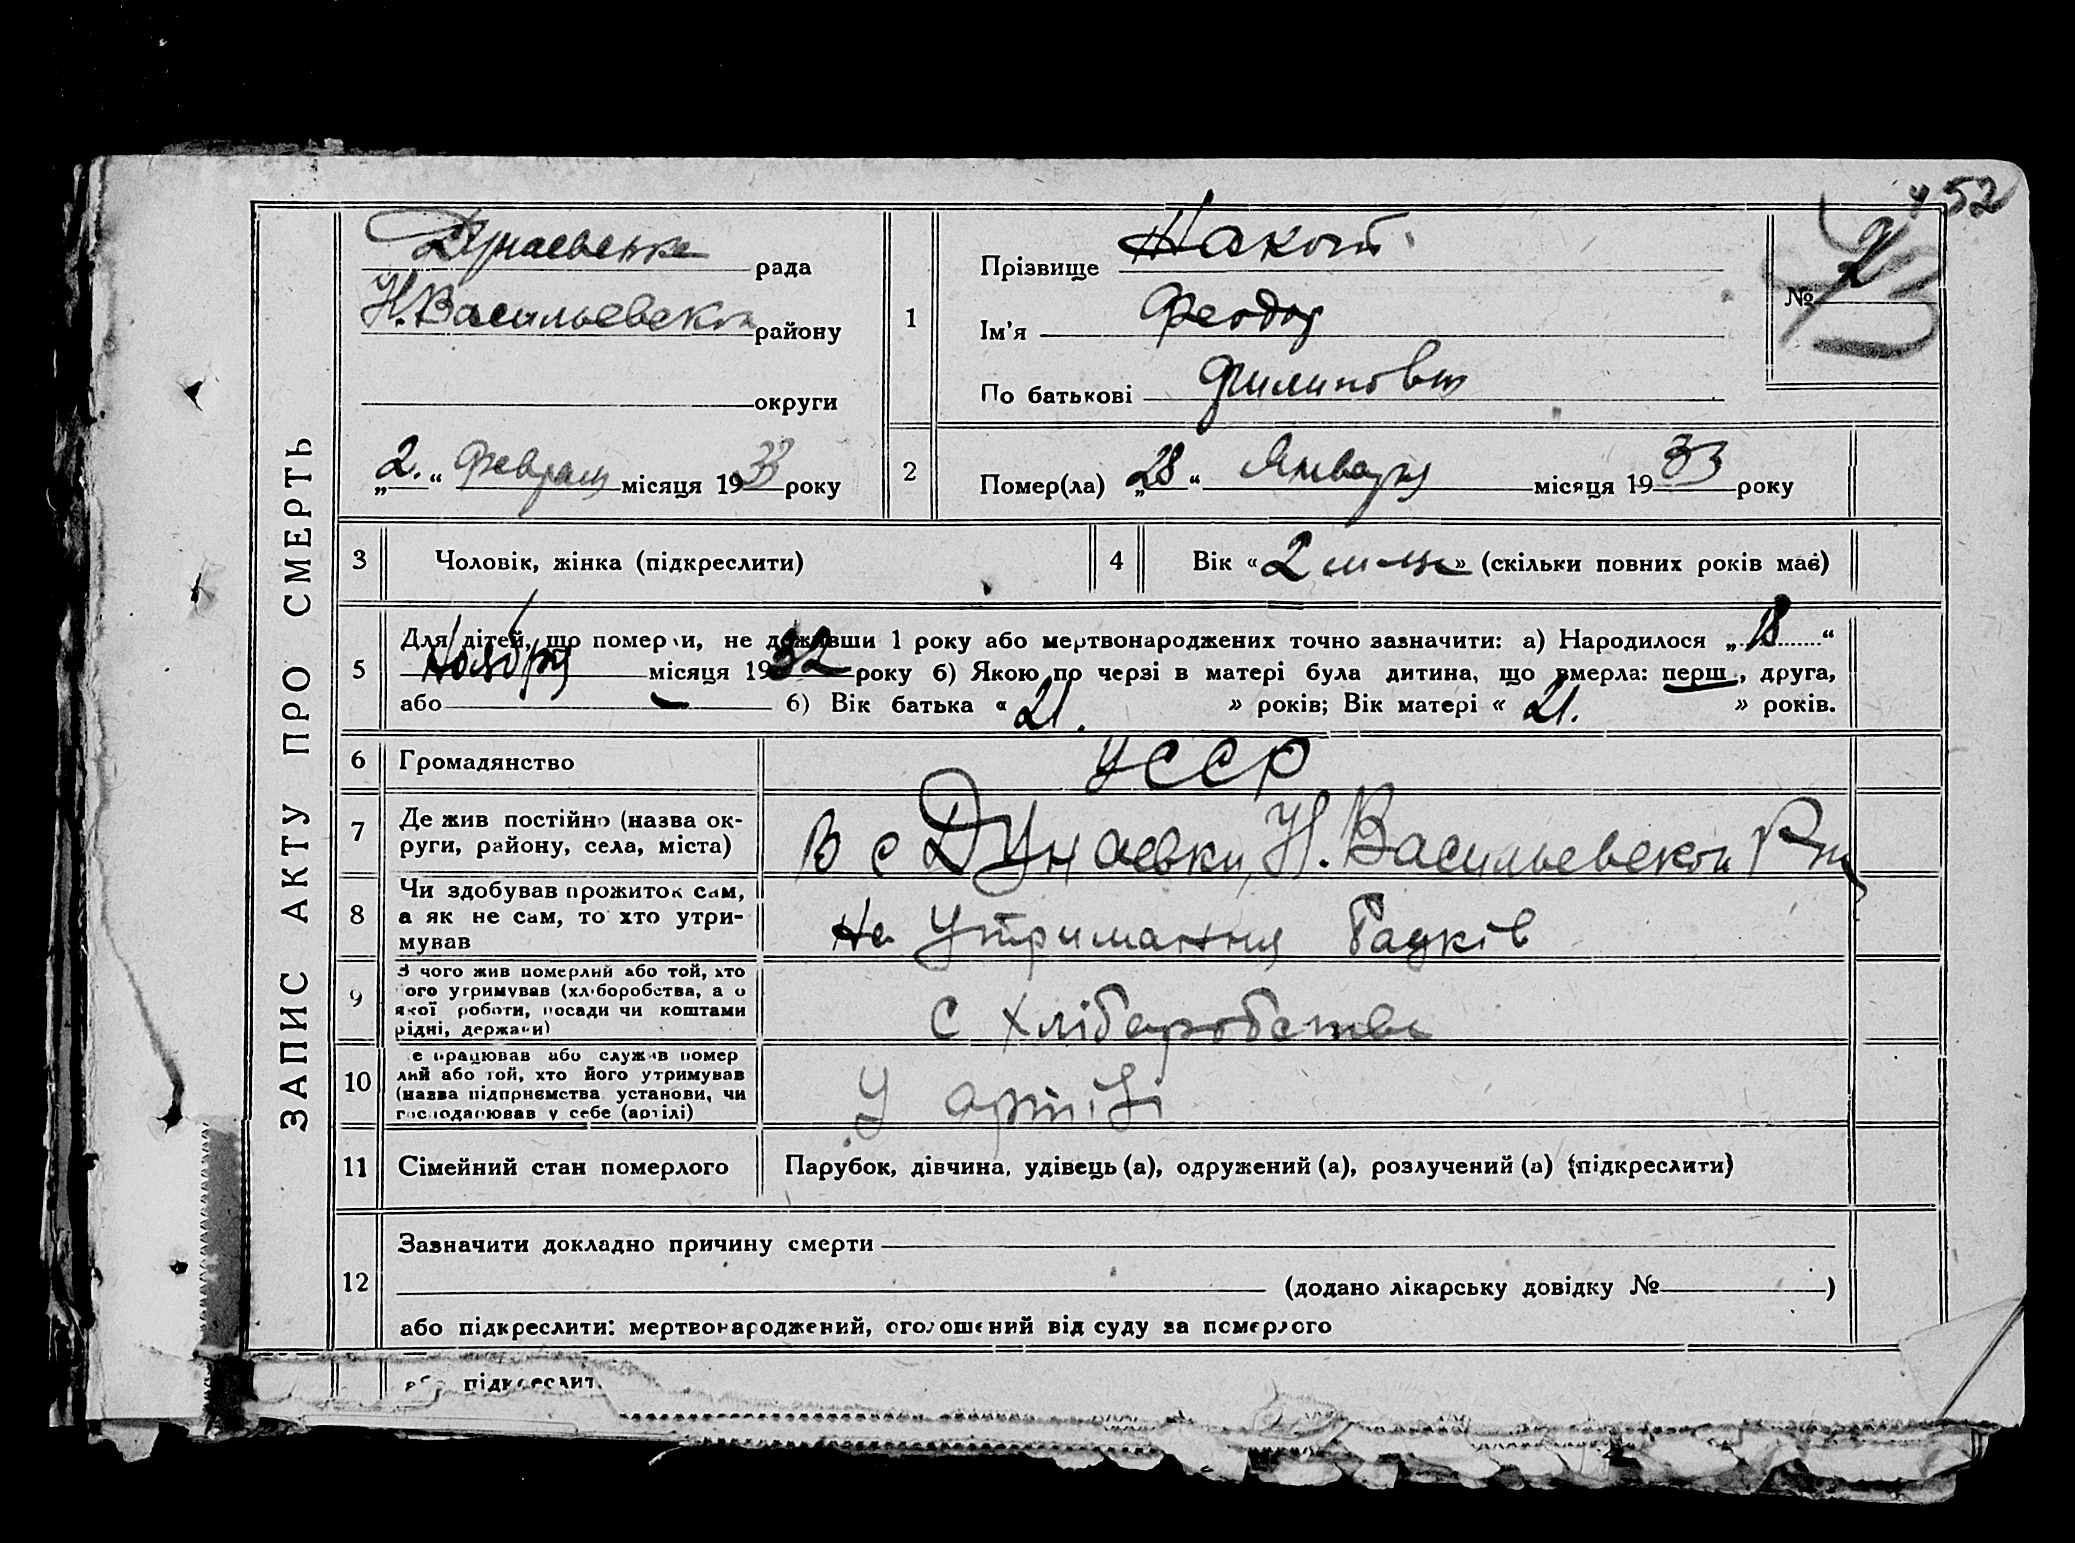 ЗАПИС АКТУ ПРО СМЕРТЬ
452
Дунаевська рада
Н.Васильевского району
округи
„2.“ февраля місяця 1933 року
1
Прізвище
Ім'я Феодор
По батькові Филипович
№ 2
2
Помер(ла) „28“ Января місяця 1933 року
3 Чоловік, жінка (підкреслити)
4 Вік «2 м-ця» (скільки повних років має)
5 Для дітей, що померли, не доживши 1 року або мертвонароджених точно зазначити: а) Народилося „18“
Ноября місяця 1932 року б) Якою по черзі в матері була дитина, що вмерла: перш, друга,
або б) Вік батька «21.» років; Вік матері «21.» років.
6 Громадянство УССР
7 Де жив постійно (назва ок-
руги, району, села, міста)
В с Дунаевки, Н.Васильевской Рн
8 Чи здобував прожиток сам,
а як не сам, то хто утри-
мував
На утримання батьків
9 З чого жив померлий або той, хто
ого утримував (хліборобства, а о
якої роботи, посади чи коштами
рідні, держави)
С хліборобства
10 е працював або служив помер
лий або той, хто його утримував
(назва підприємства установи, чи
господарював у себе (артілі)
У артілі
11 Сімейний стан померлого Парубок, дівчина, удівець (а), одружений (а), розлучений (а) (підкреслити)
12 Зазначити докладно причину смерти
(додано лікарську довідку № )
або підкреслити: мертвонароджений, оголошений від суду за померлого
або підкреслит